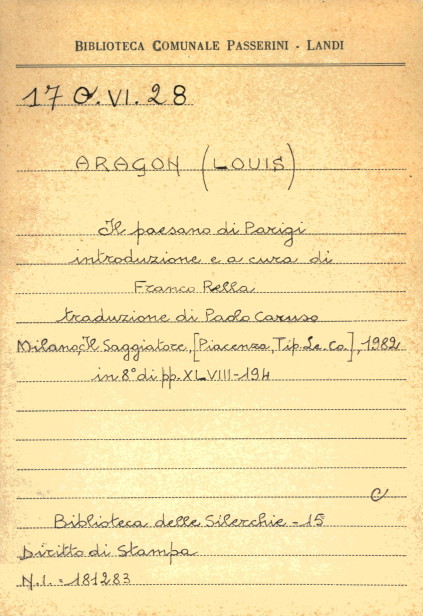 BIBLIOTECA COMUNALE PASSERINI - LANDI
17 O.VI.28
ARAGON (LOUIS)
Il paesano di Parigi
introduzione e a cura di
Franco Rella
traduzione di Paolo Caruso
Milano, Il Saggiatore, [Piacenza, Tip. Le. Co.], 1982
in 8° di pp. XLVIII-194
C
Biblioteca delle Silerchie - 15
Diritto di Stampa
N.I. = 181283